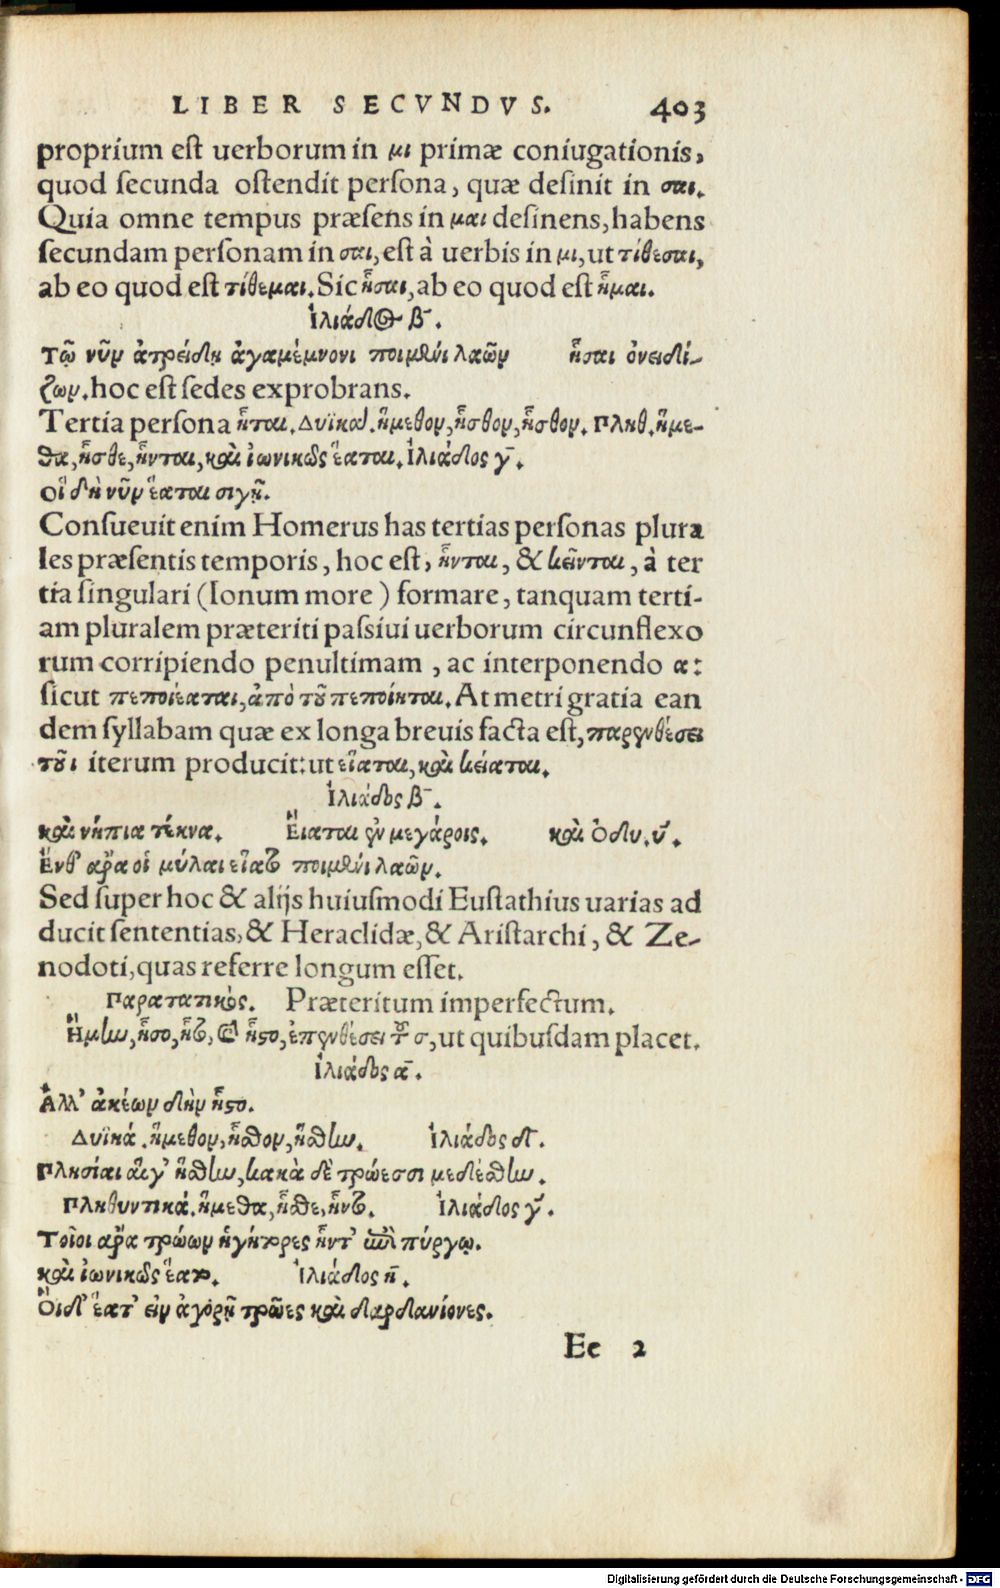 LIBER SECVNDVS. 403
proprium est uerborum in μι primæ coniugationis,
quod secunda ostendit persona, quæ desinit in σαι.
Quia omne tempus præsens in μαι desinens, habens
secundam personam in σαι, est à uerbis in μι, ut τίθεσαι,
ab eo quod est τίθεμαι. Sic ἧσαι, ab eo quod est ἧμαι.
Ἰλιάδος β̄.
Τῷ νῦν ἀτρείδῃ ἀγαμέμνονι ποιμένι λαῶν ἧσαι ὀνειδί-
ζων. hoc est sedes exprobrans.
Tertia persona ἧται. Δυϊκὰ. ἥμεθον, ἧσθον, ἧσθον. Πληθ. ἥμε-
θα, ἧσθε, ἧνται, καὶ ἰωνικῶς ἕαται. Ἰλιάδος γ̄.
οἳ δὴ νῦν ἕαται σιγῇ.
Consueuit enim Homerus has tertias personas plura
les præsentis temporis, hoc est, ἧνται, & κεῖνται, à ter
tia singulari (Ionum more) formare, tanquam terti-
am pluralem præteriti passiui uerborum circunflexo
rum corripiendo penultimam, ac interponendo α:
sicut πεποιέαται, ἀπὸ τοῦ πεποίηται. At metri gratia ean
dem syllabam quæ ex longa breuis facta est, παρενθέσει
τοῦ ι iterum producit: ut εἵαται, καὶ κείαται.
Ἰλιάδος β̄.
καὶ νήπια τέκνα. Εἵαται ἐν μεγάροις. καὶ Ὀδυ. ῡ.
Ἔνθ' ἄρα οἱ μύλαι εἵατο ποιμένι λαῶν.
Sed super hoc & alijs huiusmodi Eustathius uarias ad
ducit sententias, & Heraclidæ, & Aristarchi, & Ze-
nodoti, quas referre longum esset.
Παρατατικός. Præteritum imperfectum.
Ἥμην, ἧσο, ἧτο, & ἧστο, ἐπενθέσει τοῦ σ, ut quibusdam placet.
Ἰλιάδος ᾱ.
Ἀλλ' ἀκέων δὴν ἧστο.
Δυϊκά. ἥμεθον, ἧσθον, ἥσθην. Ἰλιάδος δ̄.
Πλησίαι αἵγ' ἥσθην, κακὰ δὲ τρώεσσι μεδέσθην.
Πληθυντικά. ἥμεθα, ἧσθε, ἧντο. Ἰλιάδος γ̄.
Τοῖοι ἄρα τρώων ἡγήτορες ἧντ' ἐπὶ πύργῳ.
καὶ ἰωνικῶς ἕατο. Ἰλιάδος η̄.
Οἳ δ' ἕατ' εἰν ἀγορῇ τρῶες καὶ δαρδανίονες.
Ee 2
Digitalisierung gefördert durch die Deutsche Forschungsgemeinschaft - DFG